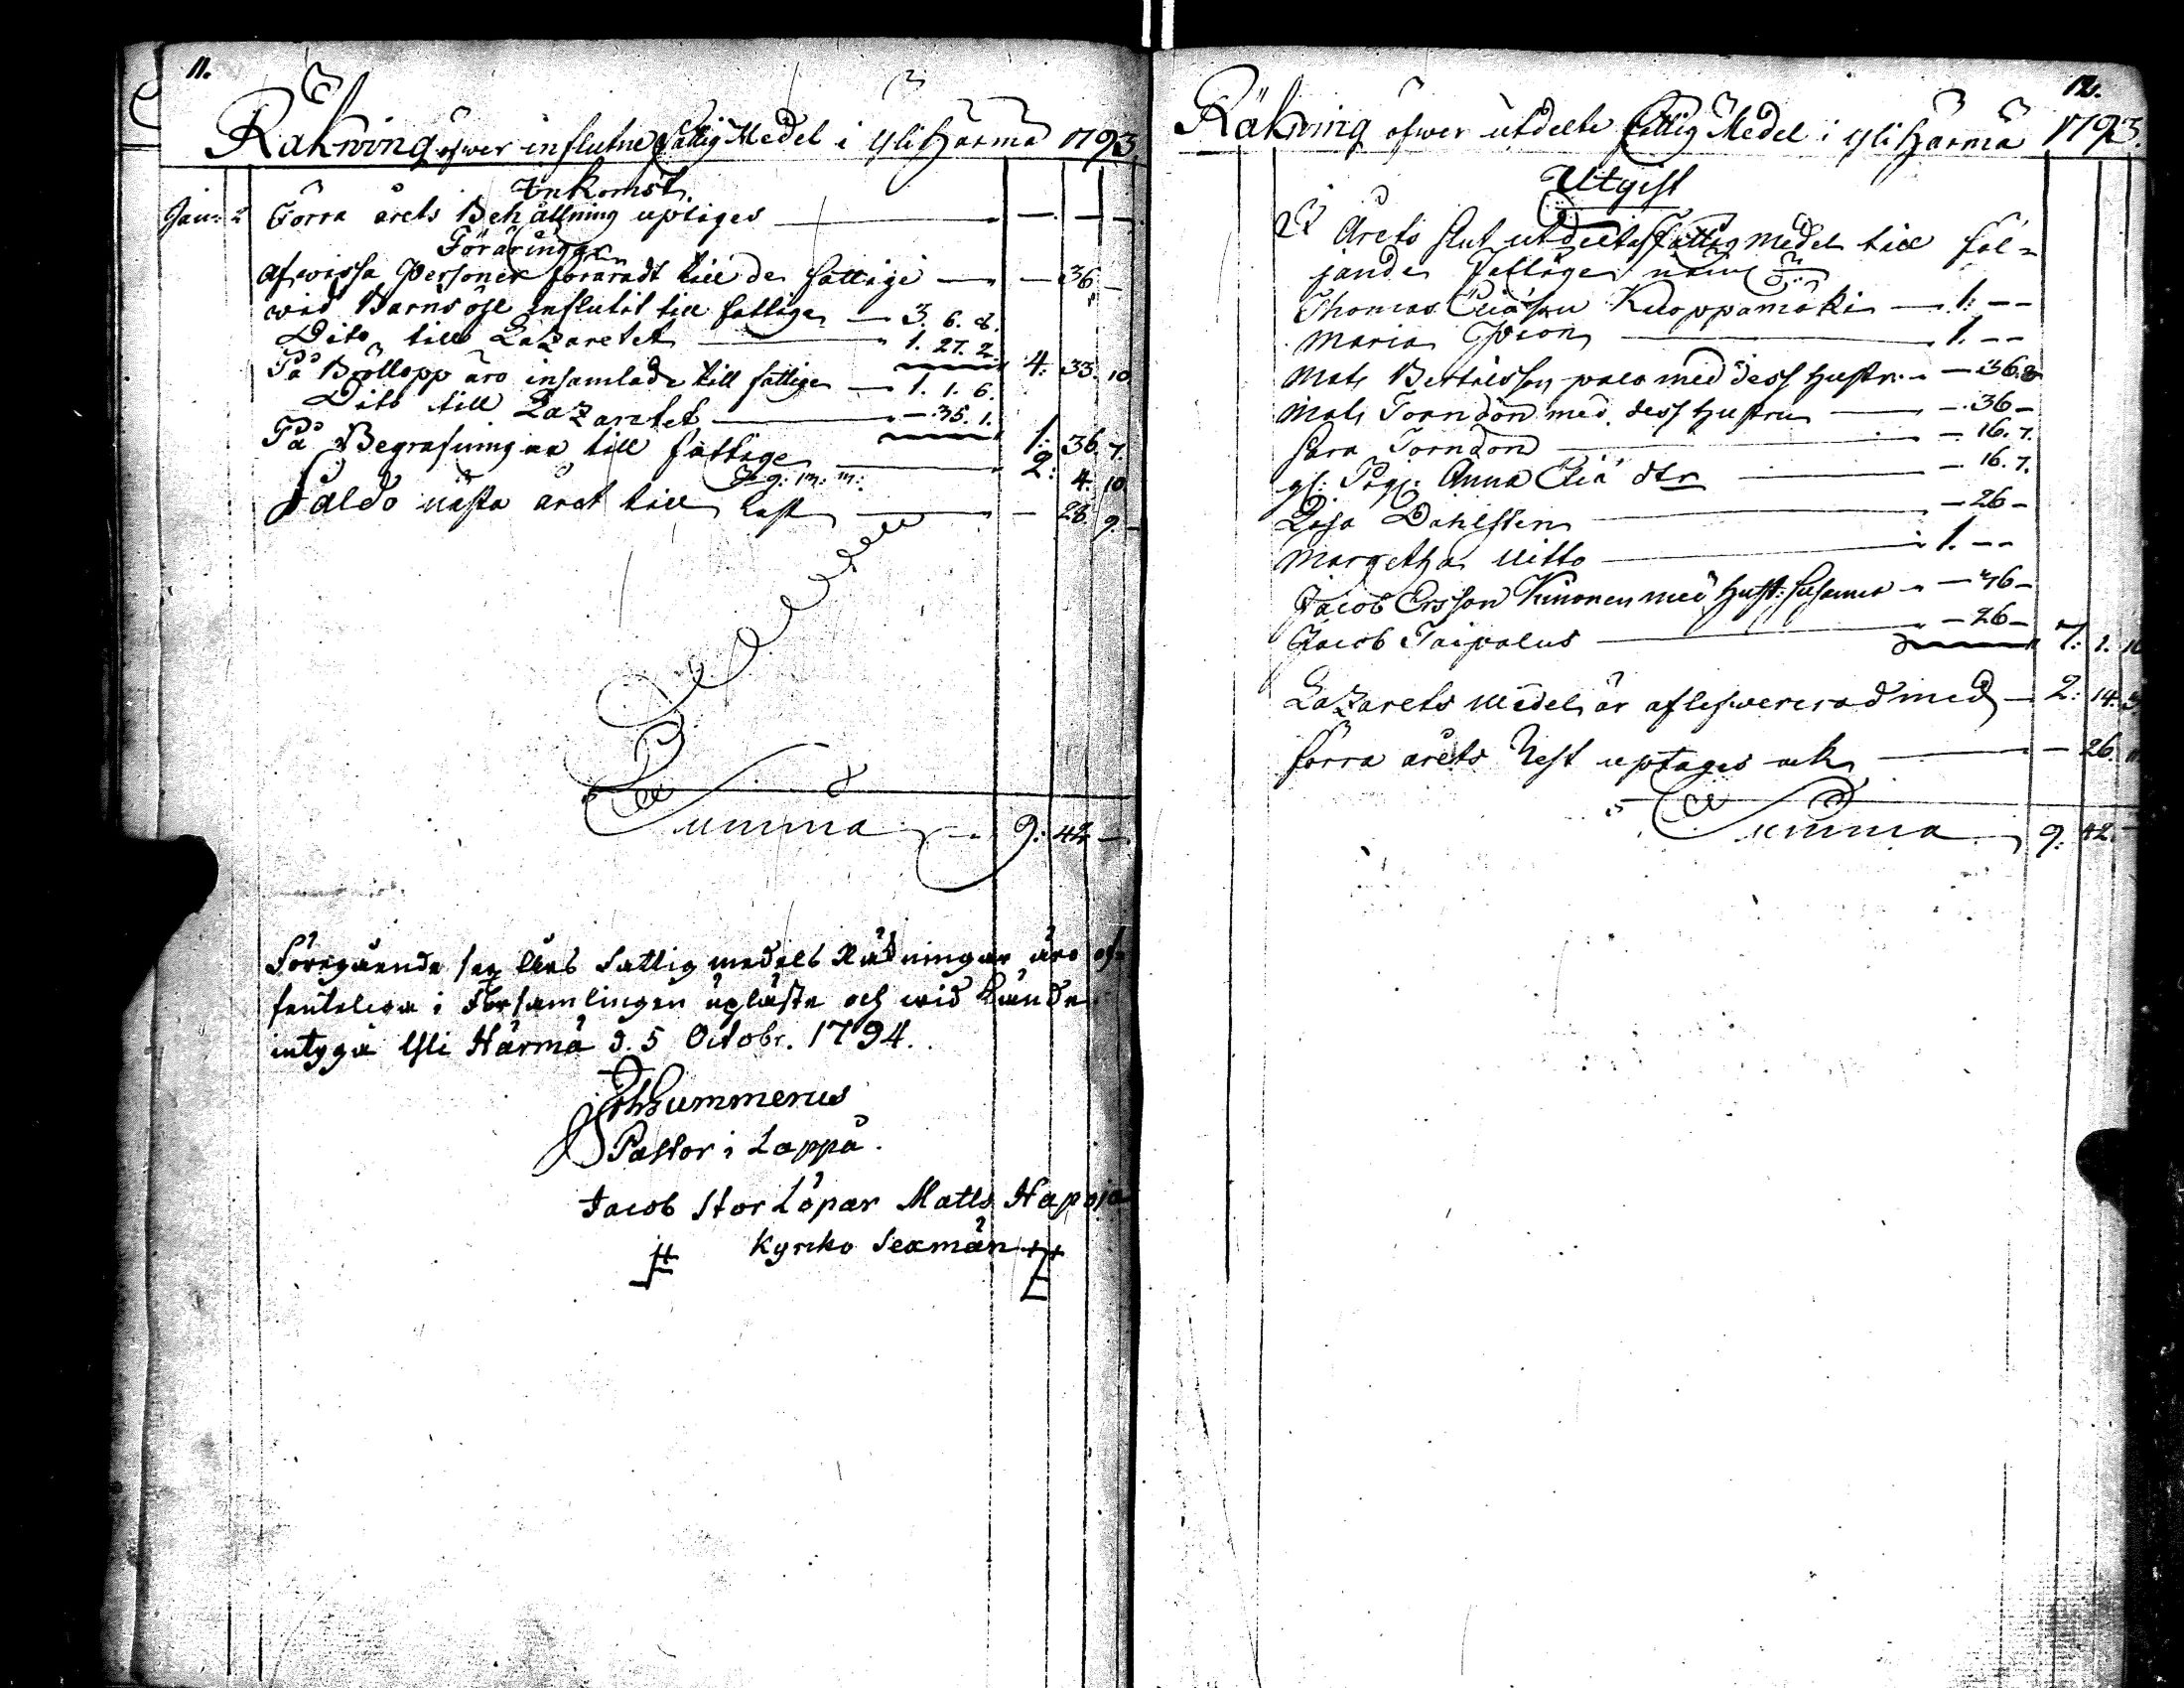 11.
Räkning öfwer influtne fattig Medel i Ylihärmä 1793
Inkomst.
Janu: 2 Förra årets Behållning uptages — — — —
Föräringar
Af wissa Personer föräradt till de fattige — — 36 —
wid Barnsöhl influtit till fattige — 3. 6. 8.
Dito till Lazaretet — 1. 27. 2. 4. 33. 10
På Bröllopp äro insamlade till fattige — 1. 1. 6.
Dito till Lazaretet — 35. 1. 1: 36. 7.
På Begrafningar till fattige 2: 4. 10.
Saldo nästa året till last — — 28. 9. —
Summa 9: 42 —
Föregående sex års fattig medels Räkningar äro of-
fenteliga i Församlingen upläste och wid kände
intyga Yli Härmä d. 5 Octobr. 1794.
Joh Hummerus
Pastor i Lappå.
Jacob Stor Löpar Matts Hapoja
Kyrcko Sexmän
12.
Räkning öfwer utdeelte fattig Medel i Ylihärmä 1793.
Utgift
Årets slut utdeeltes fattig medel till föl-
jande fattige
Thomas Eliasson Kuoppamäki — 1: — —
Maria — 1. — —
Mats Bertilsson palo med dess Hustr. — 36. 8
Mats Torndon med dess Hustru — 36 —
Sara Torndon — 16. 7.
gl: Pig: Anna Eliæ dtr — 16. 7.
Lisa Dahlsten — 26 —
Margetha Uitto 1. — —
Jacob Ersson Kinonen med Hust: Susanna — 46 —
Jacob Taipalus — 26 — 7: 1. 10
Lazarets Medel är aflefwererad med — 2: 14. 3
förra årets Rest uptages och — 26. 11
Summa 9: 42. —